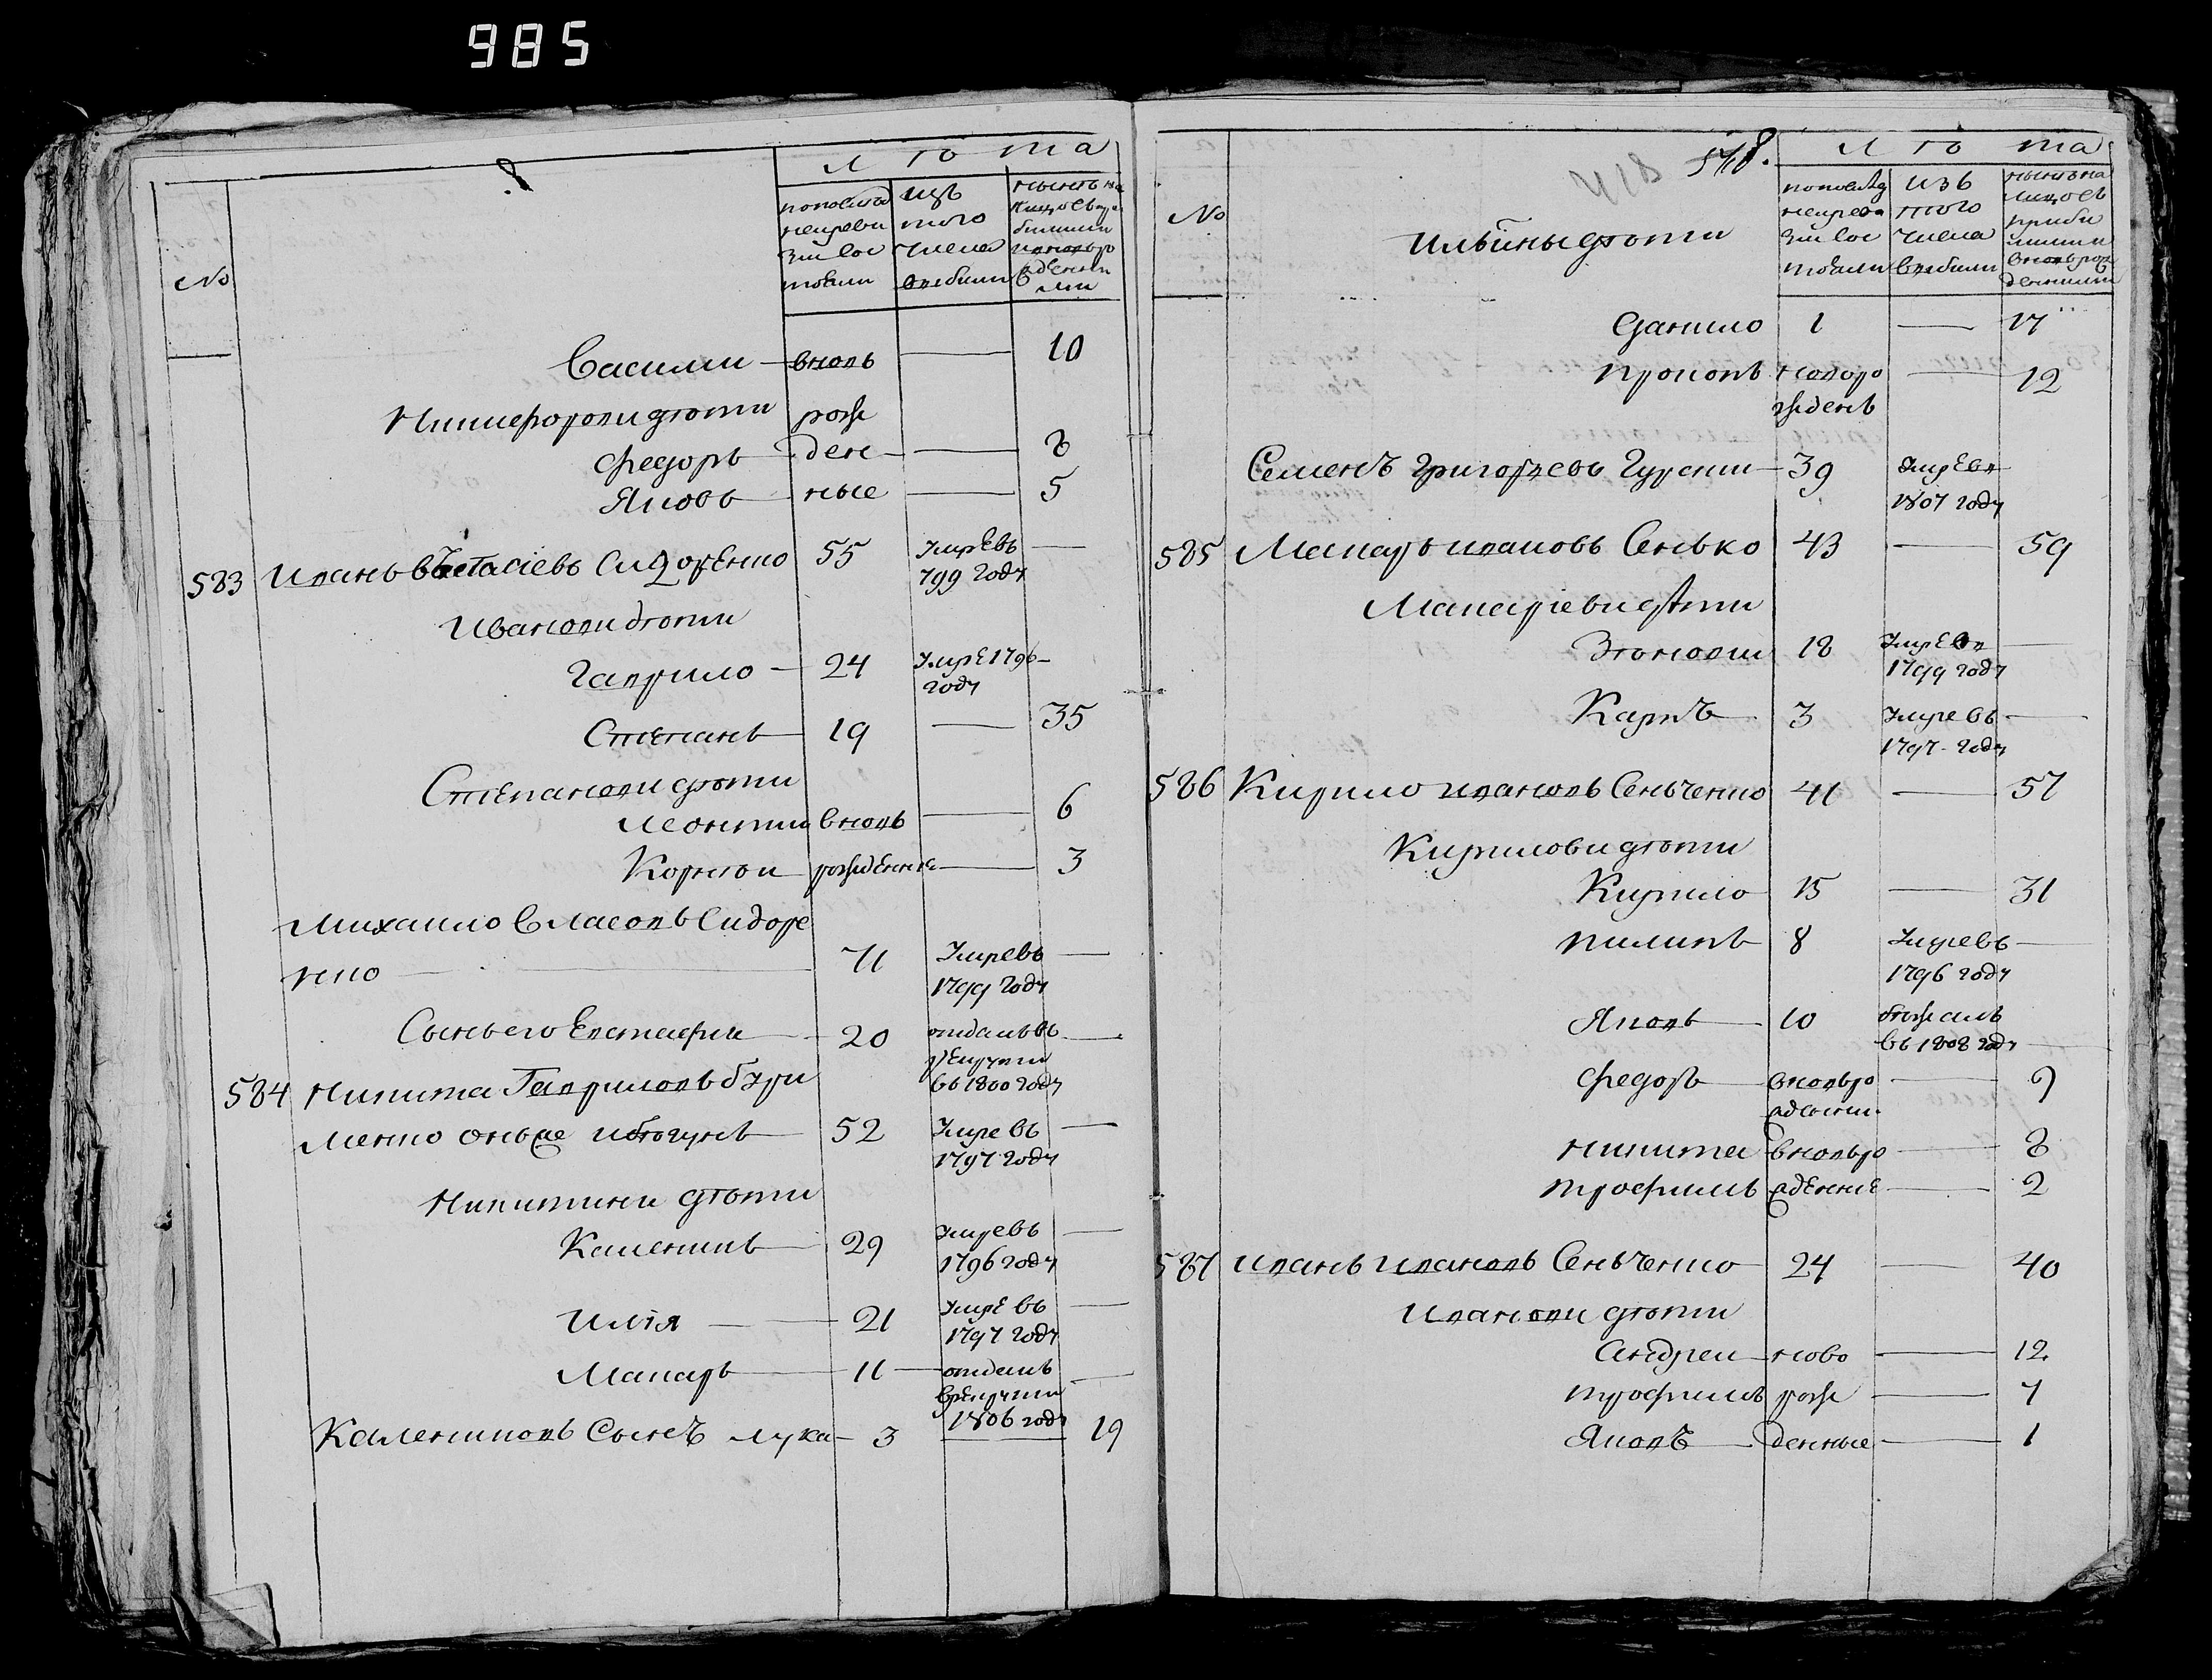 985
№
Лѣта
по последней ревизии состояли
изъ того числа выбыли
ныне на лицо съ прибылыми и вновь рожденными
Василии вновь — 10
Никифоровы дѣти рож
Федоръ ден — 8
Яковъ ные — 5
583 Иванъ Евстасіевъ Сидоренко 55 умре въ —
799 году
Ивановы дѣти
Гаврило — 24 умре 1796 —
году
Степанъ 19 — 35
Степановы дѣти
Леонтии вновь — 6
Корнѣи рожденые — 3
Михаило Власовъ Сидоре
нко — 71 умре въ —
1799 году
Сынъ его Евстафии 20 отданъ въ —
рекруты
въ 1800 году
584 Никита Гавриловъ Бури
менко онъ же и Бѣгунъ 52 умре въ —
1797 году
Никитины дѣти
Калениикъ 29 умре въ —
1796 году
Илія — 21 умре въ —
1797 году
Макаръ — 11 — отданъ —
в рекруты
1806 году
Калениковъ Сынъ Лука — 3 — 19
418 548.
№
Лѣта
Ильины дѣти
по последней ревизии состояли
изъ того числа выбыли
ныне на лицо съ прибылыми и вновь рожденными
Данило 1 — 17
Прокопъ новоро — 12
жденъ
Семенъ Григорьевъ Гурскии — 39 умре въ
1807 году
585 Макаръ Ивановъ Сенько 43 — 59
Макаріевы дѣти
Зѣновии 18 умре въ —
1799 году
Карпъ 3 умре въ —
1797 году
586 Кирило Ивановъ Сеньченко 41 — 57
Кириловы дѣти
Кирило 15 — 31
Пилипъ 8 умре въ —
1796 году
Яковъ 10 бѣжалъ
въ 1808 году —
Федоръ вновь ро — 9
жденни
Никита вновь ро — 8
Трофимъ жденные — 2
587 Иванъ Ивановъ Сеньченко 24 — 40
Ивановы дѣти
Андреи ново — 12
Трофимъ рож — 7
Яковъ денные — 1